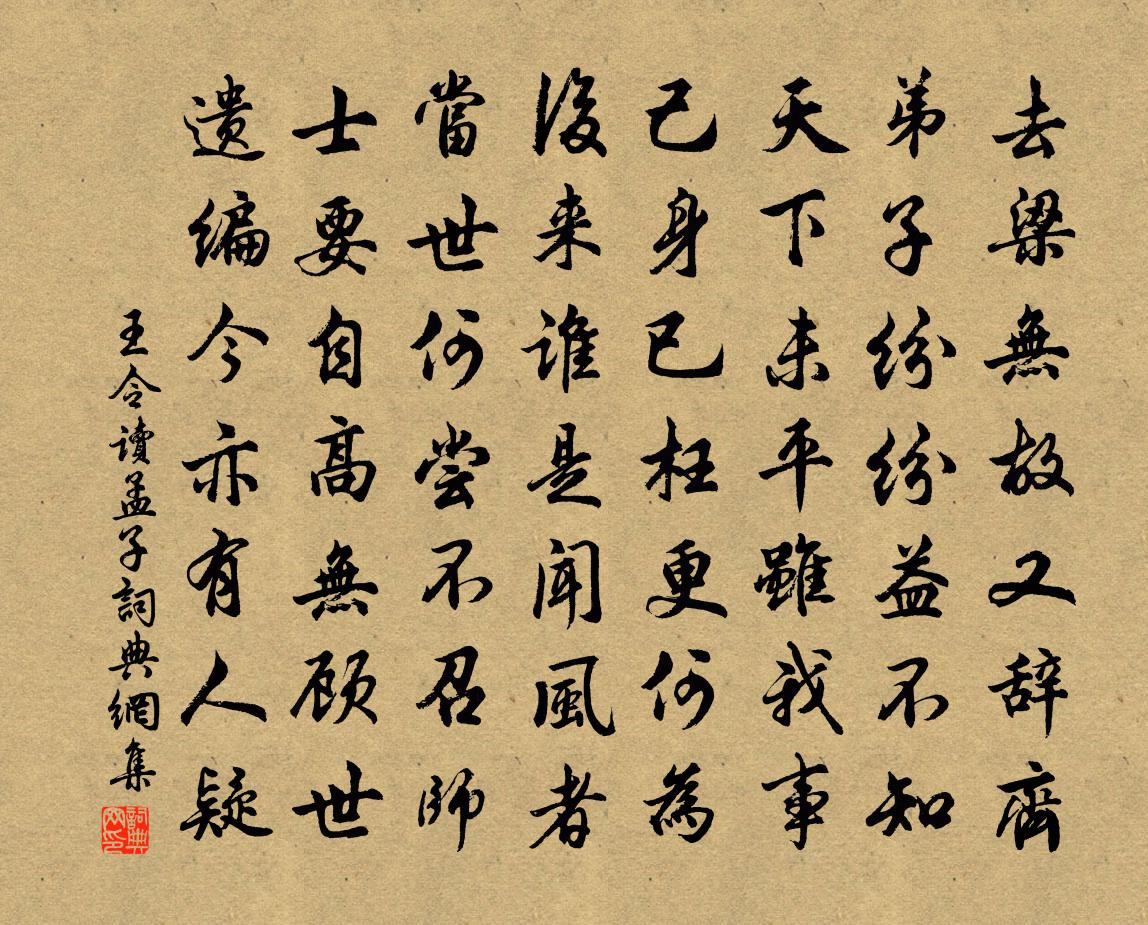 去梁無故又辞齊
弟子紛紛益不知
天下未平雖我事
己身已枉更何為
後来誰是聞風者
當世何嘗不召師
士要自高無顾世
遗编今亦有人疑
王令讀孟子詞典網集
詞典网印